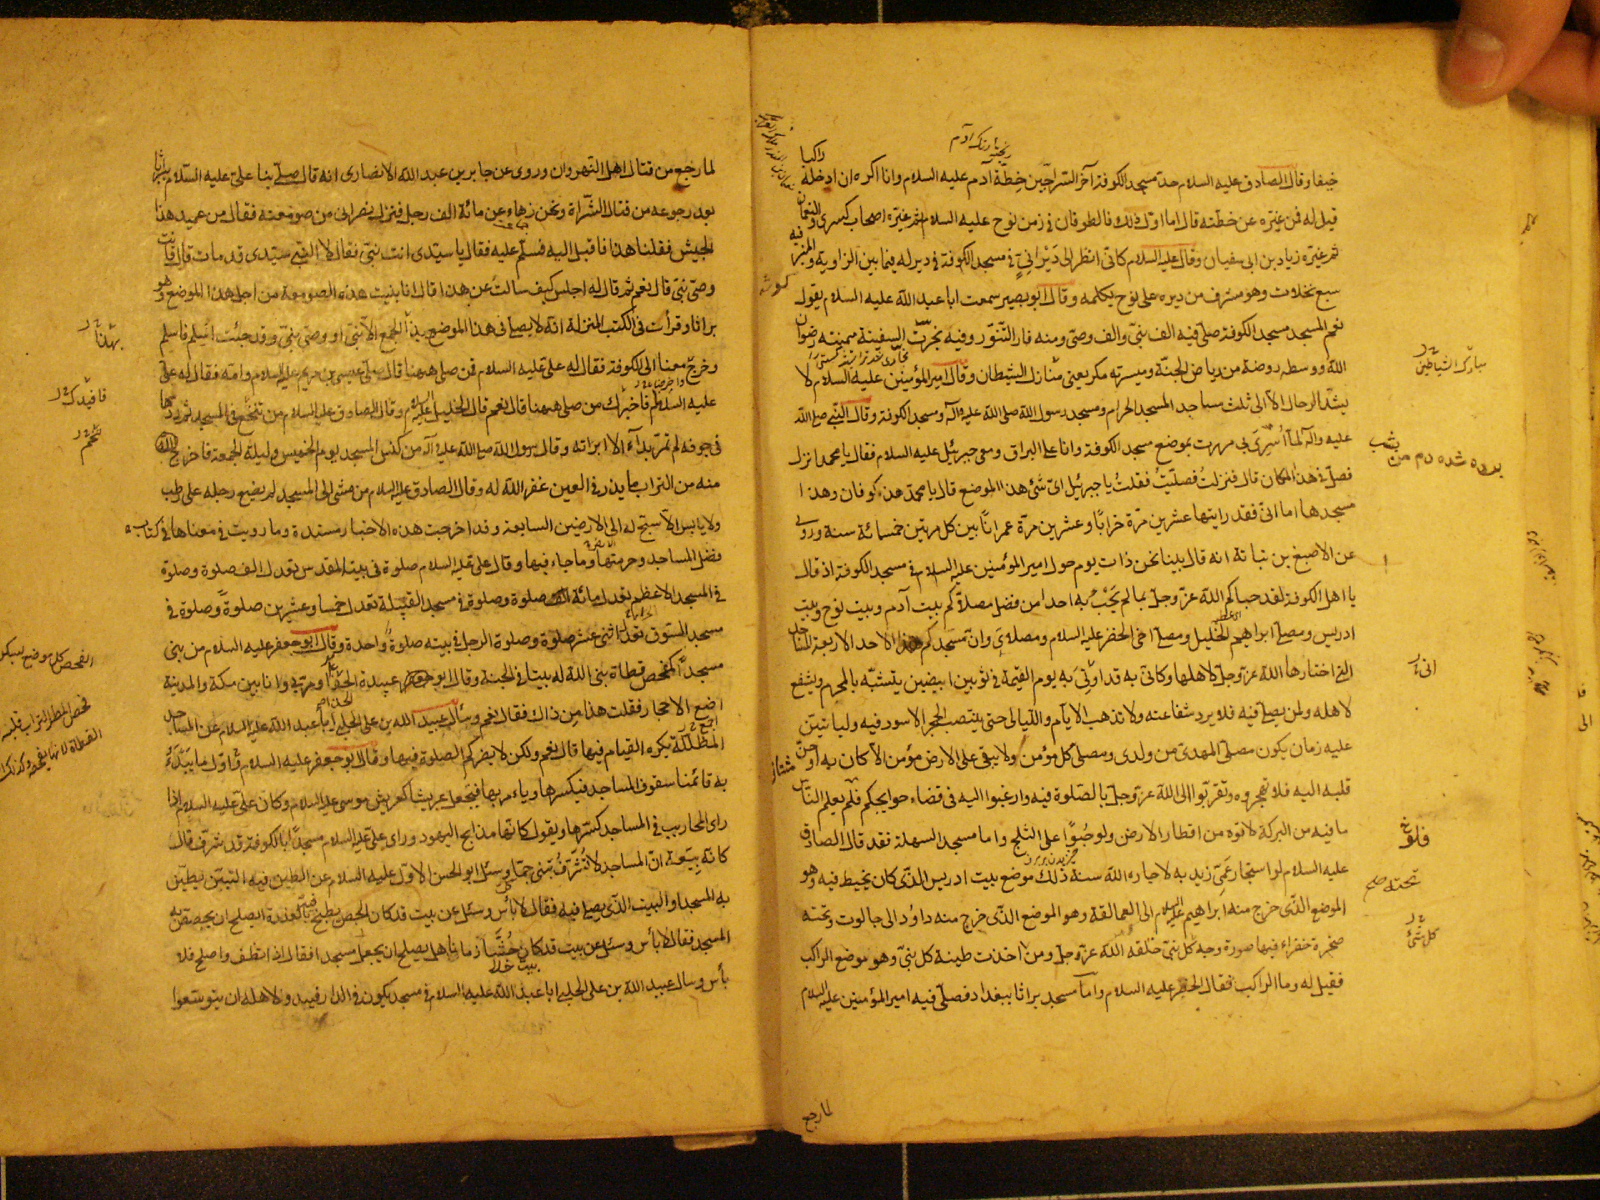 خيفا وقال الصادق عليه السلام حد مسجد الكوفة آخر السراجين خطه آدم عليه السلام وانا اكره ان ادخله راكبا
قيل له فمن غيره عن خطته قال اما اول ذلك فالطوفان في زمن نوح عليه السلام ثم غيره اصحاب كسرى والنعمان
ثم غيره زياد بن ابى سفيان وقال عليه السلام كانى انظر الى ديرانى في مسجد الكوفة في دير له فيما بين الزاوية والمنبر فيه
سبع نخلات وهو مشرف من ديره على نوح يكلمه وقال ابو بصير سمعت ابا عبد الله عليه السلام يقول
نعم المسجد مسجد الكوفة صلى فيه الف نبى والف وصى ومنه فار التنور وفيه نجرت السفينة ميمنته رضوان
الله ووسطه روضة من رياض الجنة وميسرته مكر يعنى منازل الشيطان وقال امير المؤمنين عليه السلام لا
يشد الرحال الا الى ثلث مساجد المسجد الحرام ومسجد رسول الله صلى الله عليه وآله ومسجد الكوفة وقال النبى صلى الله
عليه وآله لما اسرى بى مررت بموضع مسجد الكوفة وانا على البراق ومعى جبرئيل عليه السلام فقال يا محمد انزل
فصل في هذا المكان قال فنزلت فصليت فقلت يا جبرئيل اى شئ هذا الموضع قال يا محمد هذه كوفان وهذا
مسجدها اما انى فقد رايتها عشرين مرة خرابا وعشرين مرة عمرانا بين كل مرتين خمسمائة سنة وروى
عن الاصبغ بن نباتة انه قال بينا نحن ذات يوم حول امير المؤمنين عليه السلام في مسجد الكوفة اذ قال
يا اهل الكوفة لقد حباكم الله عز وجل بما لم يحب به احدا من فضل مصلاكم بيت آدم وبيت نوح وبيت
ادريس ومصلى ابراهيم الخليل ومصلى اخى الخضر عليه السلام ومصلاى وان مسجدكم هذا لاحد الاربعة المساجد
التى اختارها الله عز وجل لاهلها وكانى به قد اوتى به يوم القيمة في ثوبين ابيضين يتشبه بالمحرم ويشفع
لاهله ولمن يصلى فيه فلا يرد شفاعته ولا تذهب الايام والليالى حتى ينتصب الحجر الاسود فيه وليأتين
عليه زمان يكون مصلى المهدى من ولدى ومصلى كل مؤمن ولا يبقى على الارض مؤمن الا كان به او حن
قلبه اليه فلا تهجروه وتقربوا الى الله عز وجل بالصلوة فيه وارغبوا اليه في قضاء حوايجكم فلم يعلم الناس
ما فيه من البركة لاتوه من اقطار الارض ولو حبوا على الثلج واما مسجد السهلة فقد قال الصادق
عليه السلام لو استجار عمى زيد به لاجاره الله سنة ذلك موضع بيت ادريس الذى كان يخيط فيه وهو
الموضع الذى خرج منه ابراهيم عليه السلام الى العمالقة وهو الموضع الذى خرج منه داود الى جالوت وتحته
صخرة خضراء فيها صورة وجه كل نبى خلقه الله عز وجل ومن اخذت طينة كل نبى وهو موضع الراكب
فقيل له وما الراكب فقال الخضر عليه السلام واما مسجد براثا ببغداد فصلى فيه امير المؤمنين عليه السلام
لما رجع
لما رجع من قتال اهل النهروان وروى عن جابر بن عبد الله الانصارى انه قال صلى بنا على عليه السلام ببراثا
بعد رجوعه من قتال الشراة ونحن زهاء عن مائة الف رجل فنزل نصرانى من صومعته فقال من عميد هذا
الجيش فقلنا هذا فاقبل اليه فسلم عليه فقال يا سيدى انت نبى فقال لا النبى سيدى قد مات قال فانت
وصى نبى قال نعم ثم قال له اجلس كيف سالت عن هذا قال انا بنيت هذه الصومعة من اجل هذا الموضع وهو
براثا وقرأت في الكتب المنزلة انه لا يصلى في هذا الموضع بذا الجمع الا نبى او وصى نبى وقد جئت اسلم فاسلم
وخرج معنا الى الكوفة فقال له على عليه السلام فمن صلى ههنا قال صلى عيسى بن مريم عليه السلام وامه فقال له على
عليه السلام فاخبرك من صلى ههنا قال نعم قال الخليل عليه السلام وقال الصادق عليه السلام من تنخع في المسجد ثم ردها
في جوفه لم تمر بداء الا ابرأته وقال رسول الله صلى الله عليه وآله من كنس المسجد يوم الخميس وليلة الجمعة فاخرج
منه من التراب ما يذر في العين غفر الله له وقال الصادق عليه السلام من مشى الى المسجد لم يضع رجله على رطب
ولا يابس الا سبح له الى الارضين السابعة وقد اخرجت هذه الاخبار مسندة وما رويت في معناها في كتاب
فضل المساجد وحرمتها وما جاء فيها وقال على عليه السلام صلوة في بيت المقدس تعدل الف صلوة وصلوة
في المسجد الاعظم تعدل مائة الف صلوة وصلوة في مسجد القبيلة تعدل خمسا وعشرين صلوة وصلوة في
مسجد السوق تعدل اثنى عشر صلوة وصلوة الرجل في بيته صلوة واحدة وقال ابو جعفر عليه السلام من بنى
مسجدا كمفحص قطاة بنى الله له بيتا في الجنة وقال ابو عبيدة الحذاء ومر بى وانا بين مكة والمدينة
اضع الاحجار فقلت هذا من ذاك فقال نعم وسأل عبيد الله بن على الحلبى ابا عبد الله عليه السلام عن المساجد
المظللة يكره القيام فيها قال نعم ولكن لا يضركم الصلوة فيها وقال ابو جعفر عليه السلام اول ما يبدء
به قائمنا سقوف المساجد فيكسرها ويامر بها فيجعل عريشا كعريش موسى عليه السلام وكان على عليه السلام اذا
راى المحاريب في المساجد كسرها ويقول كانها مذابح اليهود وراى على عليه السلام مسجدا بالكوفة قد شرف قال
كانه بيعة ان المساجد لا تشرف تبنى جما وسئل ابو الحسن الاول عليه السلام عن الطين فيه التبن يطين
به المسجد او البيت الذى يصلى فيه فقال لا بأس وسئل عن بيت قد كان الجص يطبخ بالعذرة ايصلح ان يجصص به
المسجد فقال لا بأس وسئل عن بيت قد كان حشا زمانا هل يصلح ان يجعل مسجدا فقال اذا نظف واصلح فلا
بأس وسأل عبيد الله بن على الحلبى ابا عبد الله عليه السلام في مسجد يكون في الدار فيبدو لاهله ان يتوسعوا